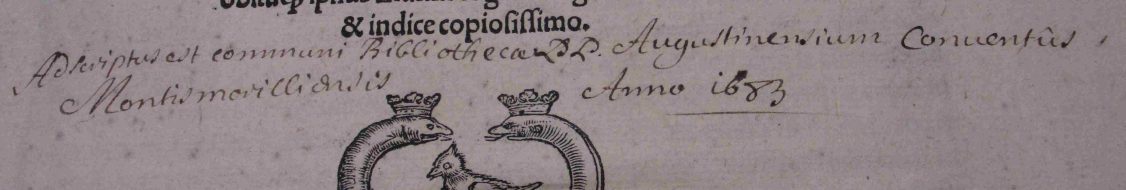 & indice copiosissimo.
Adscriptus est communi Bibliothecæ PP. Augustinensium Conventûs
Montismorillidnsis Anno 1683